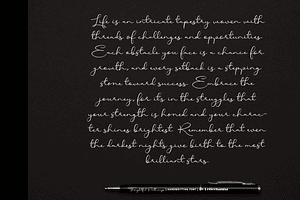 Life is an intricate tapestry woven with
threads of challenges and opportunities.
Each obstacle you face is a chance for
growth, and every setback is a stepping
stone toward success. Embrace the
journey, for its in the struggles that
your strength is honed and your charac-
ter shines brightest. Remember that even
the darkest nights give birth to the most
brilliant stars.
HANDWRITING FONT